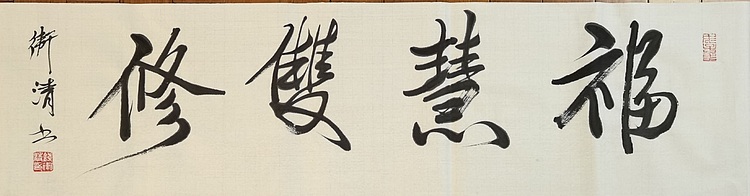 福慧雙修
衛清書